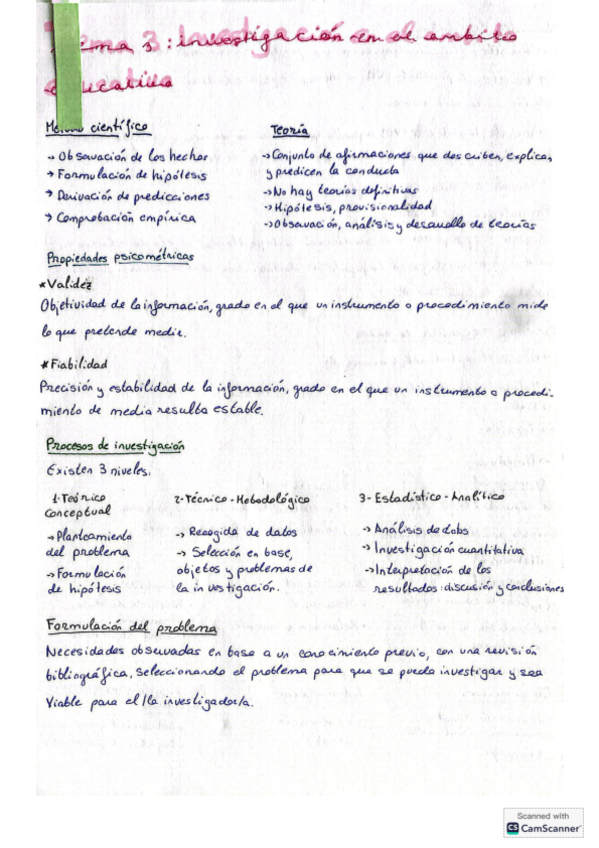 Tema 3: investigación en el ámbito
educativo
Método científico
→ Observación de los hechos
→ Formulación de hipótesis
→ Derivación de predicciones
→ Comprobación empírica
Teoría
→ Conjunto de afirmaciones que describen, explican
y predicen la conducta
→ No hay teorías definitivas
→ Hipótesis, provisionalidad
→ Observación, análisis y desarrollo de teorías
Propiedades psicométricas
*Validez
Objetividad de la información, grado en el que un instrumento o procedimiento mide
lo que pretende medir.
*Fiabilidad
Precisión y estabilidad de la información, grado en el que un instrumento o procedi-
miento de media resulta estable.
Procesos de investigación
Existen 3 niveles.
1-Teórico
conceptual
→ Planteamiento
del problema
→ Formulación
de hipótesis
2-Técnico-Metodológico
→ Recogida de datos
→ Selección en base,
objetos y problemas de
la investigación.
3- Estadístico-Analítico
→ Análisis de datos
→ Investigación cuantitativa
→ Interpretación de los
resultados: discusión y conclusiones
Formulación del problema
Necesidades observadas en base a un conocimiento previo, con una revisión
bibliográfica. Seleccionando el problema para que se pueda investigar y sea
viable para el/la investigador/a.
Scanned with
CS CamScanner